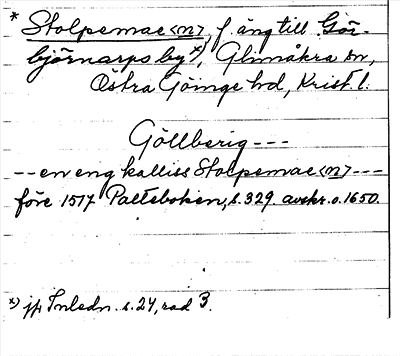 * Stolpemae <n>, f. äng till Gör-
björnarps by x), Glimåkra sn,
Östra Göinge hd, Krist. l.
Göllberig ---
-- en eng kalliss Stolpemae <n> ---
före 1517 Palteboken, s. 329. avskr. o. 1650.
x) jfr Inledn. s. 24, rad 3.